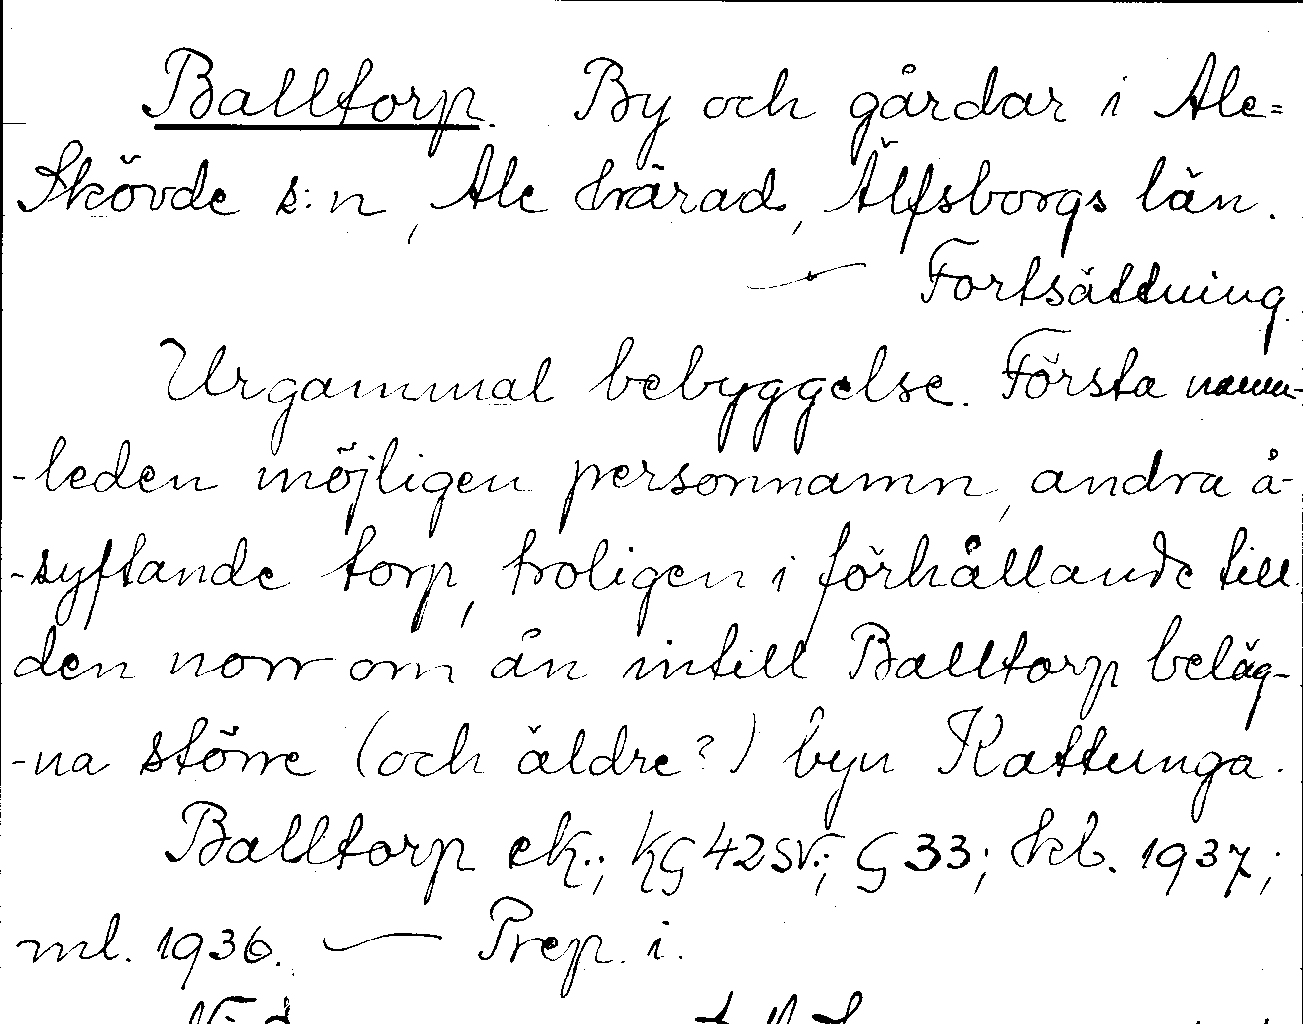 Balltorp. By och gårdar i Ale=
Skövde s:n, Ale härad, Älfsborgs län.
— Fortsättning.
Urgammal bebyggelse. Första namn-
-leden möjligen personnamn, andra å-
-syftande torp, troligen i förhållande till
den norr om ån intill Balltorp beläg-
-na större (och äldre?) byn Kattunga.
Balltorp ek.; KG 42 SV.; G 33; hkb. 1937;
ml. 1936. — Prep. i.